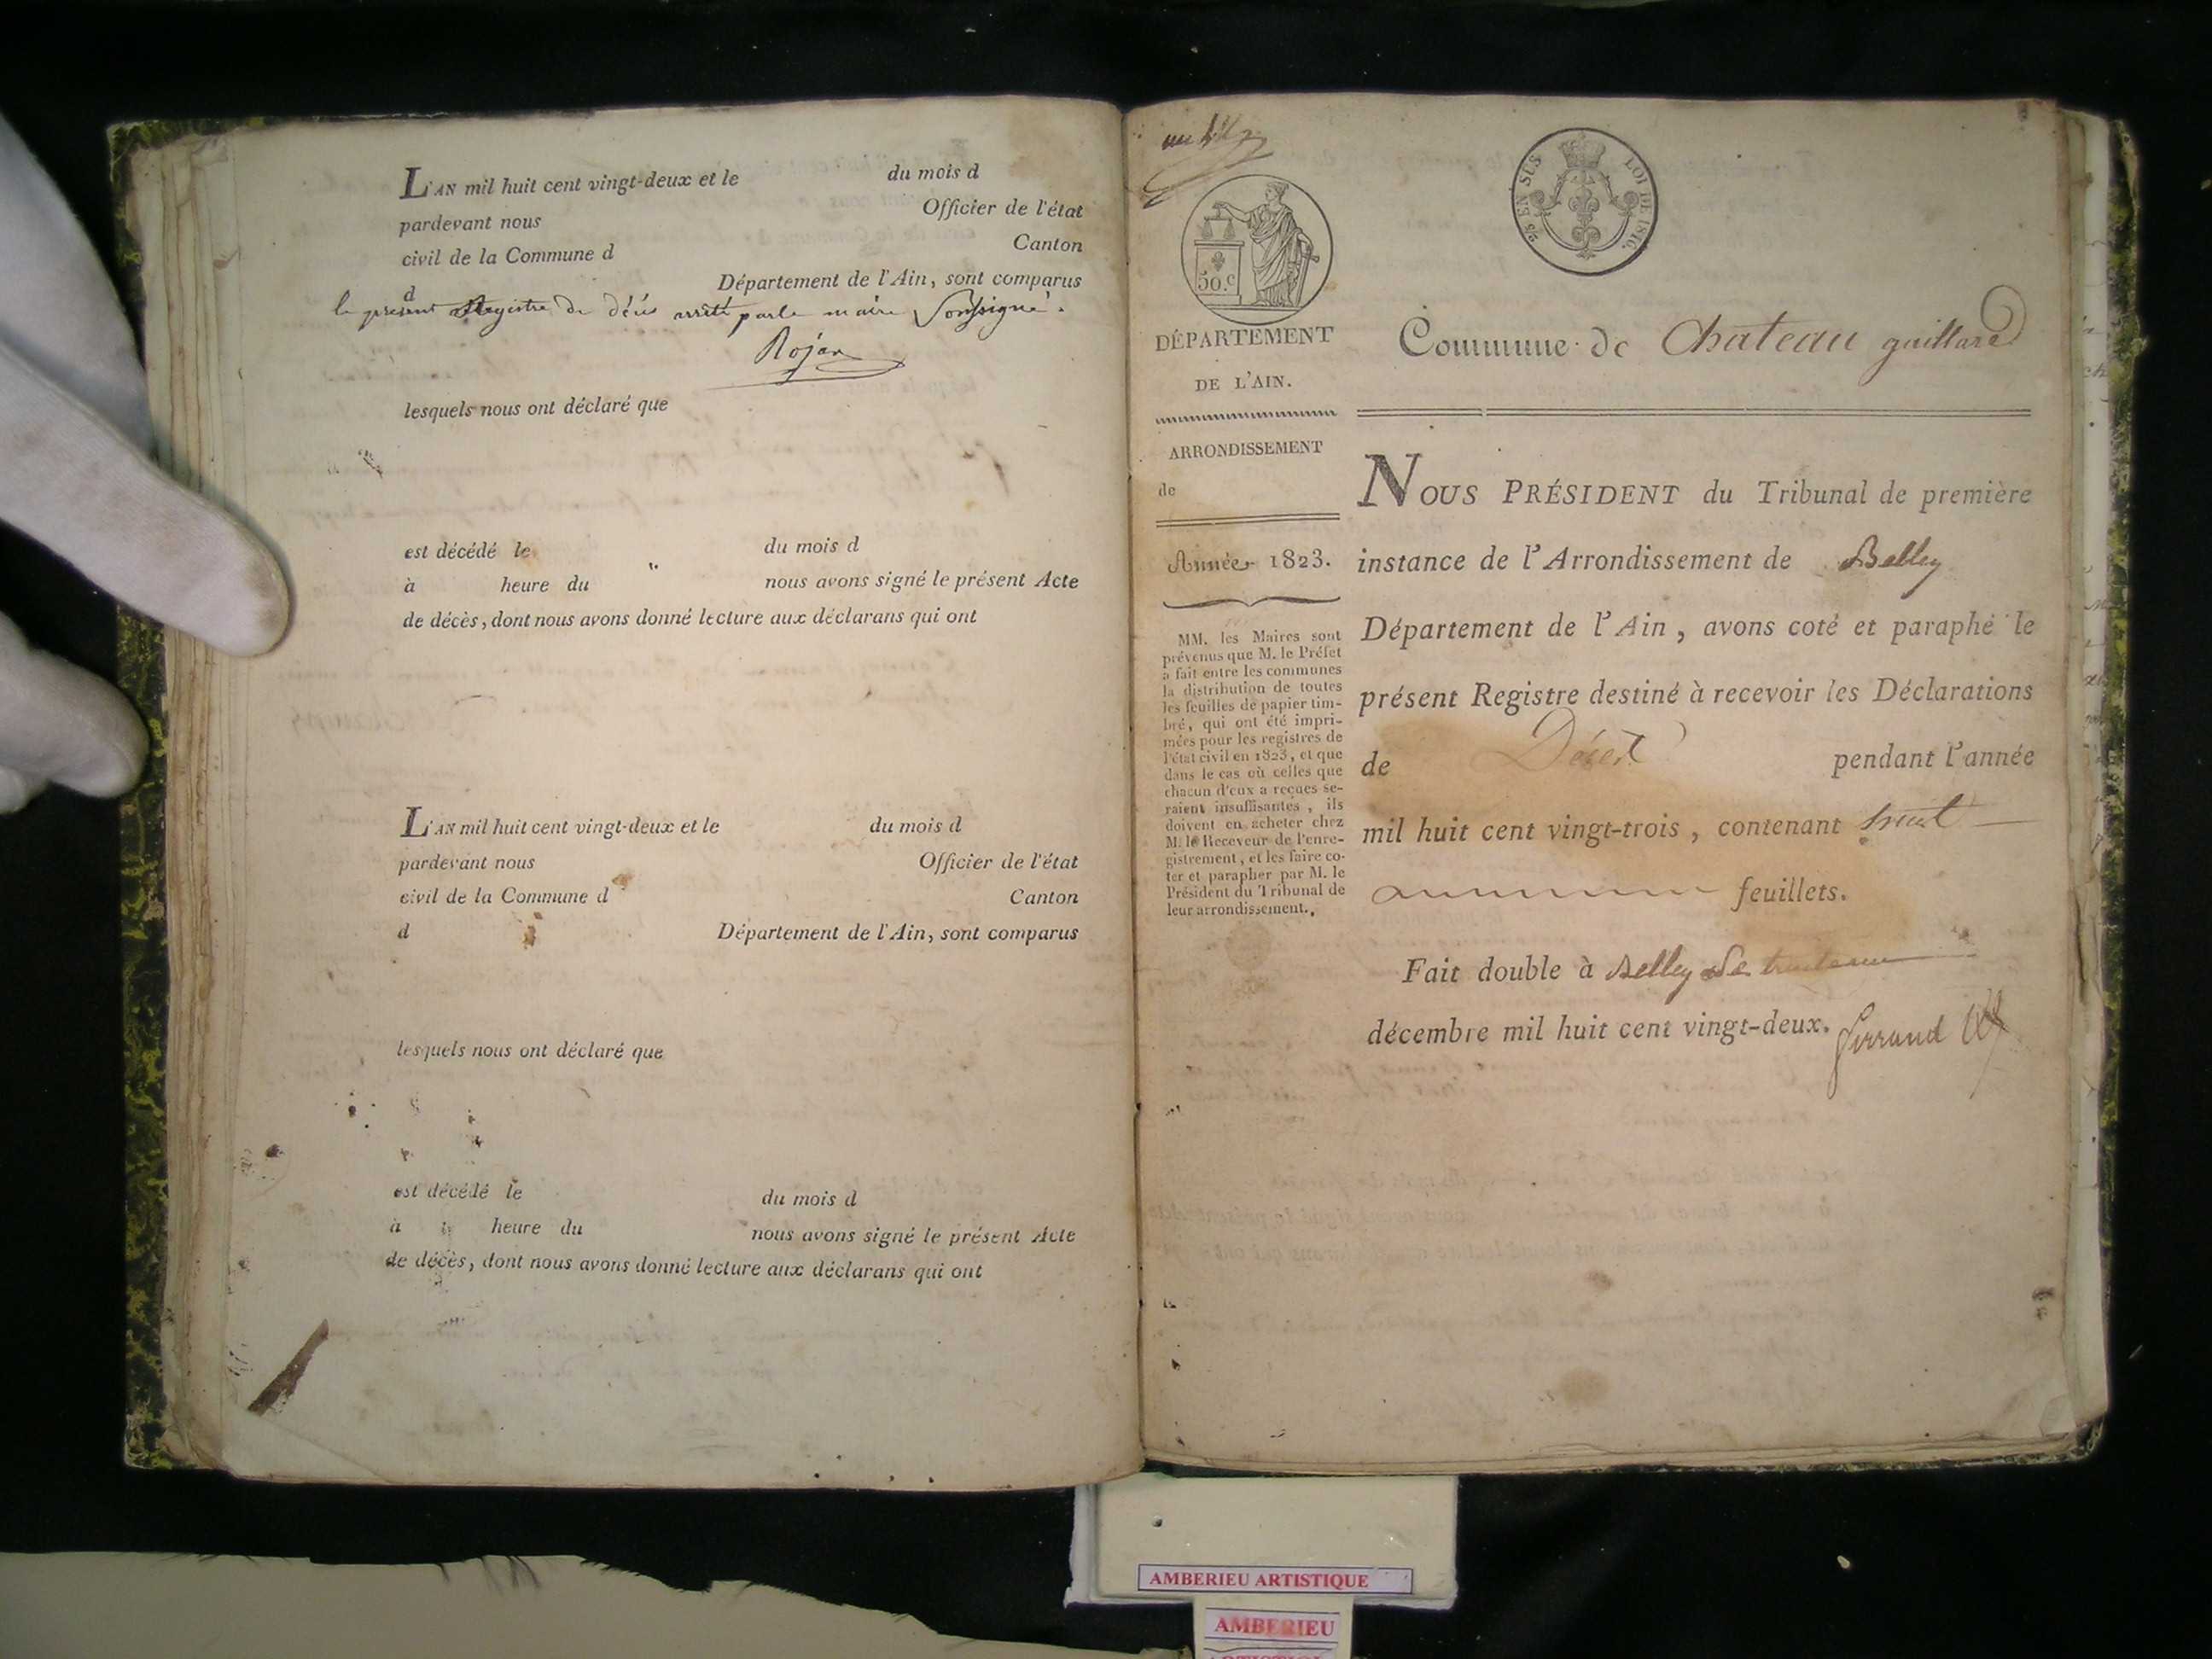 L'AN mil huit cent vingt-deux et le du mois d
pardevant nous Officier de l'état
civil de la Commune d Canton
d Département de l'Ain, sont comparus
le present Registre de décès arrêté par le maire soussigné.
Rojan
lesquels nous ont déclaré que
est décédé le du mois d
à heure du nous avons signé le présent Acte
de décès, dont nous avons donné lecture aux déclarans qui ont
L'AN mil huit cent vingt-deux et le du mois d
pardevant nous Officier de l'état
civil de la Commune d Canton
d Département de l'Ain, sont comparus
lesquels nous ont déclaré que
est décédé le du mois d
à heure du nous avons signé le présent Acte
de décès, dont nous avons donné lecture aux déclarans qui ont
50.c
DÉPARTEMENT
DE L'AIN.
ARRONDISSEMENT
de
Année 1823.
MM. les Maires sont
prévenus que M. le Préfet
a fait entre les communes
la distribution de toutes
les feuilles de papier tim-
bré, qui ont été impri-
mées pour les registres de
l'état civil en 1823, et que
dans le cas où celles que
chacun d'eux a reçues se-
raient insuffisantes, ils
doivent en acheter chez
M. le Receveur de l'enre-
gistrement, et les faire co-
ter et parapher par M. le
Président du Tribunal de
leur arrondissement.
EN SUS LOI DE 1816.
Commune de Chateau gaillard
NOUS PRÉSIDENT du Tribunal de première
instance de l'Arrondissement de Belley
Département de l'Ain, avons coté et paraphé le
présent Registre destiné à recevoir les Déclarations
de Décès pendant l'année
mil huit cent vingt-trois, contenant huit
feuillets.
Fait double à Belley le trente un
décembre mil huit cent vingt-deux.
AMBERIEU ARTISTIQUE
AMBERIEU